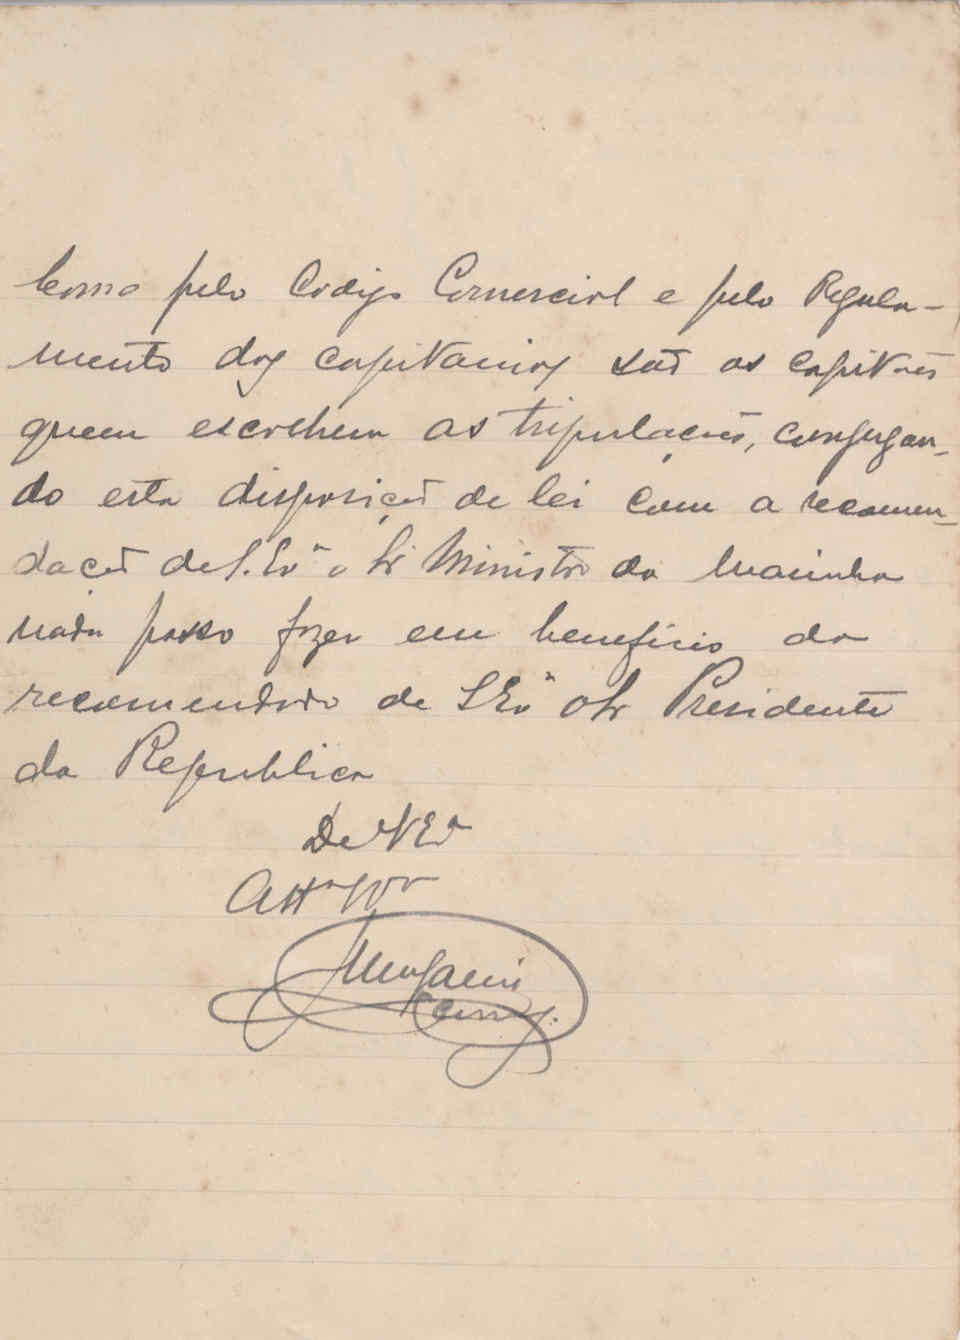 Como pelo Codigo Comercial e pelo Regula-
mento das capitanias são os capitães
quem escolhem as tripulações, conjugan-
do esta disposição de lei com a recomen-
dação de S. Exª o Sr Ministro da Marinha
nada posso fazer em beneficio do
recomendado de S Exª o Sr Presidente
da Republica
De V Exª
Attº